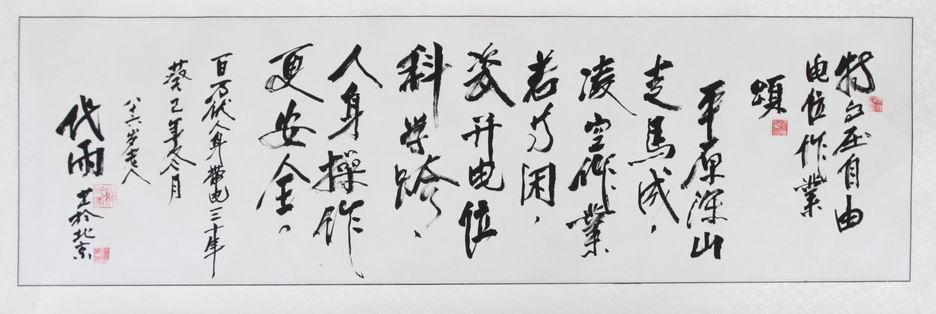 特高压自由
电位作業
頌
平原深山
走馬成，
凌空作業
若等闲，
电位
科学跨，
人身操作
更安全。
百万伏人身带电三十年
癸巳年冬月
八十六岁老人
代雨
书於北京